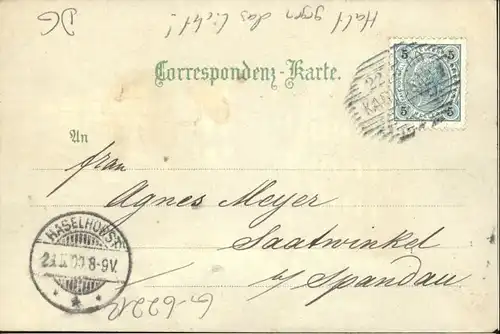 DG
Halt gegen das Licht!
Correspondenz-Karte.
5 5
22.
KAR
5 5
An
Frau
Agnes Meyer
Saatwinkel
b/ Spandau
HASELHORST
8-9V.